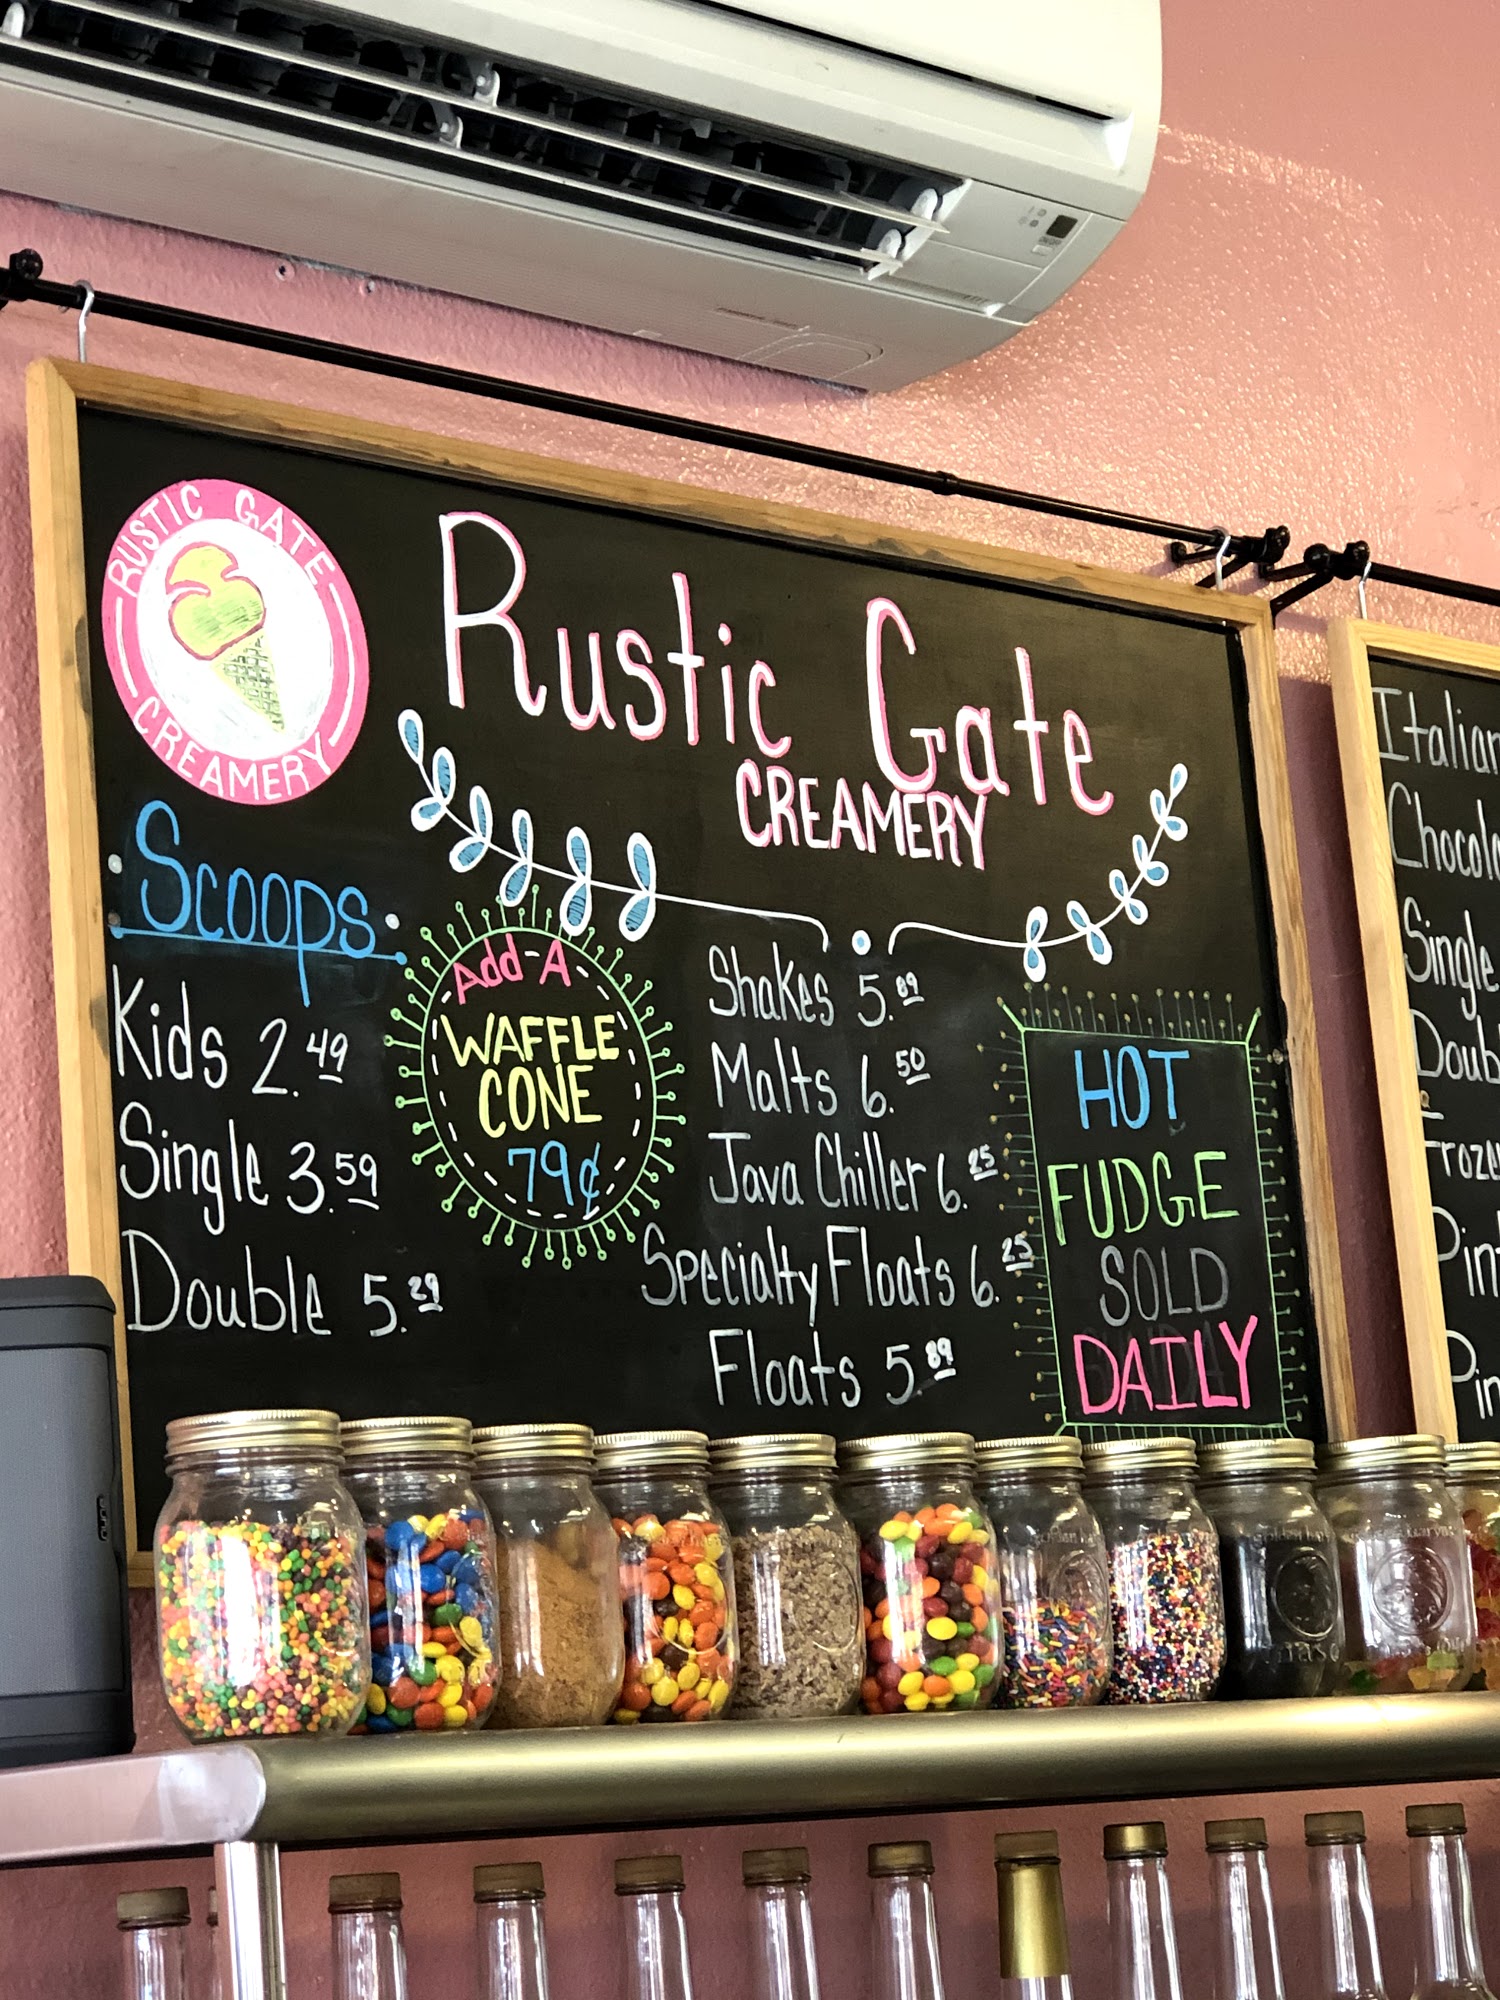 RUSTIC GATE
CREAMERY
Rustic Gate
CREAMERY
Scoops
Kids 2.49
Single 3.59
Double 5.29
Add-A
WAFFLE
CONE
79¢
Shakes 5.89
Malts 6.50
Java Chiller 6.25
Specialty Floats 6.25
Floats 5.89
HOT
FUDGE
SOLD
DAILY
Italian
Single